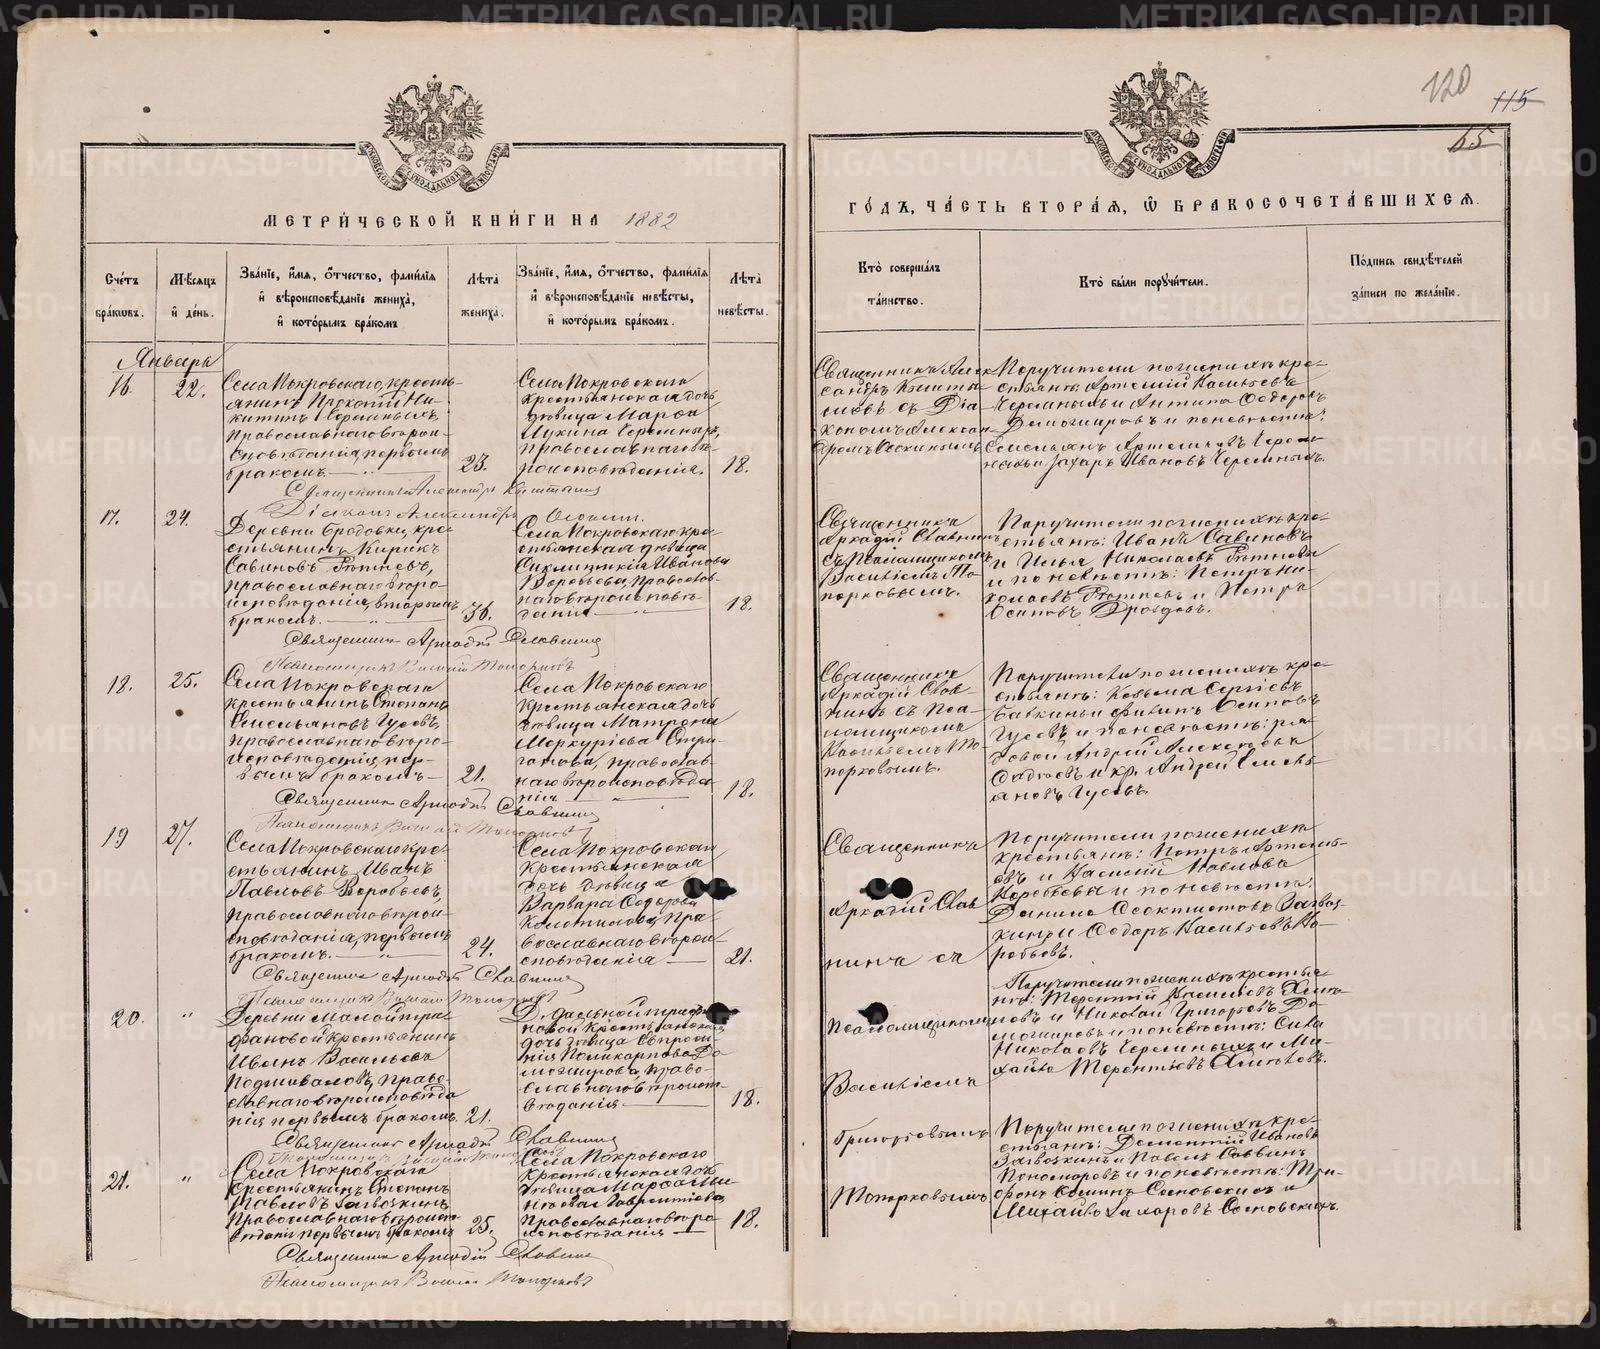 МЕТРИ́ЧЕСКОЙ КНИ́ГИ НА 1882
ГО́ДЪ, ЧА́СТЬ ВТОРА́Я, Ѡ҆ БРАКОСОЧЕТА́ВШИХСЯ.
120
115
65
Сче́тъ бра́ковъ.
Мѣ́сяцъ и҆ де́нь.
Зва́нїе, и҆́мя, ѻ҆́тчество, фами́лїя
и҆ вѣроисповѣ́данїе жениха̀,
и҆ кото́рымъ бра́комъ.
Лѣ́та жениха̀.
Зва́нїе, и҆́мя, ѻ҆́тчество, фами́лїя
и҆ вѣроисповѣ́данїе невѣ́сты,
и҆ кото́рымъ бра́комъ.
Лѣ́та невѣ́сты.
Кто̀ соверша́лъ та́инство.
Кто̀ бы́ли поручи́тели.
По́дпись свидѣ́телей за́писи по жела́нїю.
Январь
16. 22.
Села Покровскаго, кресть-
янинъ Прокопій Ни-
китинъ Черемныхъ,
православнаго вѣрои-
сповѣданія, первымъ
бракомъ. 23.
Села Покровскаго
крестьянская дочь
дѣвица Марѳа
Черемныхъ,
православнаго вѣ-
роисповѣданія. 18.
Священникъ Алек-
сандръ
съ Діа-
кономъ Алексан-
дромъ
Поручители по женихѣ кре-
стьяне: Артемій Васильевъ
Черемныхъ и Антипа Ѳедоровъ
Деможировъ и по невѣстѣ:
Емельянъ Артемьевъ Черем-
ныхъ и Захаръ Ивановъ Черемныхъ.
Священникъ Александръ
Діаконъ Александръ
17. 24.
Деревни Бродовки, кре-
стьянинъ Кирикъ
Савиновъ Рѣтневъ,
православнаго вѣро-
исповѣданія, вторымъ
бракомъ. 36.
Села Покровскаго кре-
стьянская дѣвица
Иванова
Воробьева, православ-
наго вѣроисповѣ-
данія 18.
Священникъ
Аркадій Славнинъ
съ Псаломщикомъ
Василіемъ То-
порковымъ.
Поручители по женихѣ кре-
стьяне: Иванъ Савиновъ
и Илья Николаевъ Рѣтневы
и по невѣстѣ: Петръ Ни-
колаевъ Рѣтневъ и Петръ
Осиповъ Дроздовъ.
Священникъ Аркадій Славнинъ
Псаломщикъ Василій Топорковъ
18. 25.
Села Покровскаго
крестьянинъ Степанъ
Емельяновъ Гусевъ,
православнаго вѣро-
исповѣданія, пер-
вымъ бракомъ 21.
Села Покровскаго
крестьянская дочь
дѣвица Матрона
Меркуріева Стри-
ганова, православ-
наго вѣроисповѣда-
нія 18.
Священникъ
Аркадій Слав-
нинъ съ Пса-
ломщикомъ
Василіемъ То-
порковымъ.
Поручители по женихѣ кре-
стьяне: Козьма Сергіевъ
Бабкинъ и Филипъ Осиповъ
Гусевъ и по невѣстѣ: ря-
довой Андрей Алексѣевъ
и кр. Андрей Емель-
яновъ Гусевъ.
Священникъ Аркадій Славнинъ
Псаломщикъ Василій Топорковъ
19 27.
Села Покровскаго кре-
стьянинъ Иванъ
Павловъ Воробьевъ,
православнаго вѣрои-
сповѣданія, первымъ
бракомъ. 24.
Села Покровскаго
крестьянская
дочь дѣвица
Варвара Ѳедорова
Колотилова, пра-
вославнаго вѣрои-
сповѣданія 21.
Священникъ
Аркадій Слав-
нинъ съ
Псаломщикомъ
Василіемъ
Григорьевымъ
Топорковымъ
Поручители по женихѣ
крестьяне: Петръ Артемь-
евъ и Василій Павловъ
Воробьевы и по невѣстѣ:
Данило Ѳеоктистовъ Загвоз-
кинъ и Ѳедоръ Васильевъ Во-
робьевъ.
Священникъ Аркадій Славнинъ
Псаломщикъ Василій Топорковъ
20. "
Деревни Малой Три-
фановой крестьянинъ
Иванъ Васильевъ
Подшиваловъ, право-
славнаго вѣроисповѣда-
нія первымъ бракомъ. 21.
Д. Дальной Трифа-
новой крестьянская
дочь дѣвица Евпракси-
нія Поликарпова До-
можирова, право-
славнаго вѣроиспо-
вѣданія 18.
Поручители по женихѣ крестья-
не: Терентій Васильевъ
и Николай Григорьевъ До-
можировъ и по невѣстѣ: Сила
Николаевъ Черемныхъ и Ми-
хайло Терентьевъ
Священникъ Аркадій Славнинъ
21. "
Села Покровскаго
крестьянинъ Степанъ
Павловъ Загвозкинъ
православнаго вѣроиспо-
вѣданія первымъ бракомъ 25.
Села Покровскаго
крестьянская дочь
дѣвица Марѳа
Лаврентіева,
православнаго вѣро-
исповѣданія 18.
Поручители по женихѣ кре-
стьяне: Дементій Ивановъ
Загвозкинъ и Павелъ Саввинъ
Пономаревъ и по невѣстѣ: Три-
фонъ Сосновскихъ и
Михайло Захаровъ Сосновскихъ.
Священникъ Аркадій Славнинъ
Псаломщикъ Василій Топорковъ
METRIKI.GASO-URAL.RU